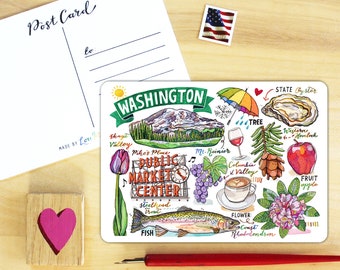 Post Card
to
MADE BY
WASHINGTON
STATE
TREE
Western
Hemlock
Mt. Rainier
Pike's Place
PUBLIC
MARKET
CENTER
Columbia
Valley
FRUIT
apple
Steelhead
Trout
FISH
FLOWER
Coast
Rhododendron